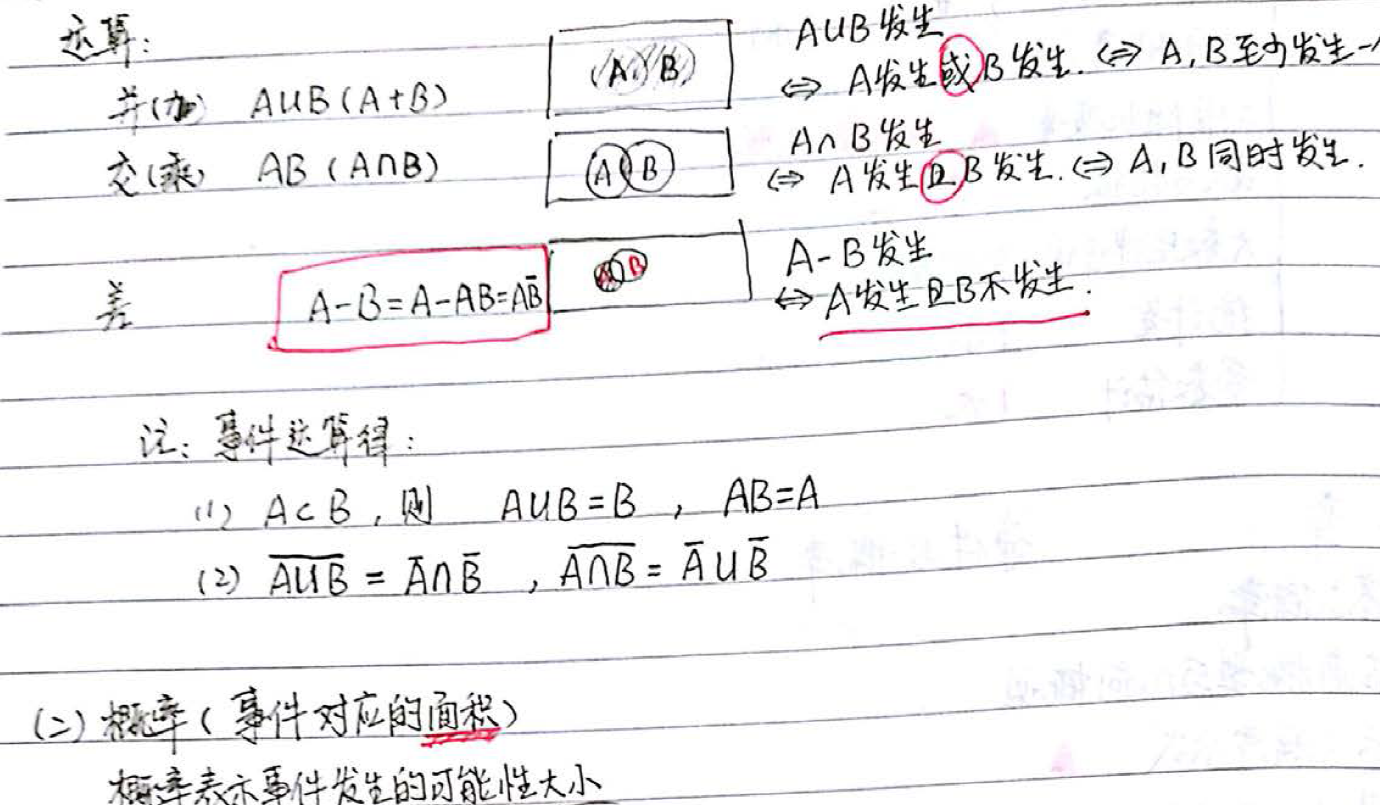 运算:
并(加) A∪B(A+B) (A B) A∪B发生
⇔ A发生或B发生. ⇔ A,B至少发生一个
交(乘) AB (A∩B) A B A∩B发生
⇔ A发生且B发生. ⇔ A,B同时发生.
差 A-B=A-AB=AB̅ A B A-B发生
⇔ A发生且B不发生.
注: 事件运算律:
(1) A⊂B, 则 A∪B=B , AB=A
(2) \overline{A∪B} = A̅∩B̅ , \overline{A∩B} = A̅∪B̅
(二) 概率(事件对应的面积)
概率表示事件发生的可能性大小